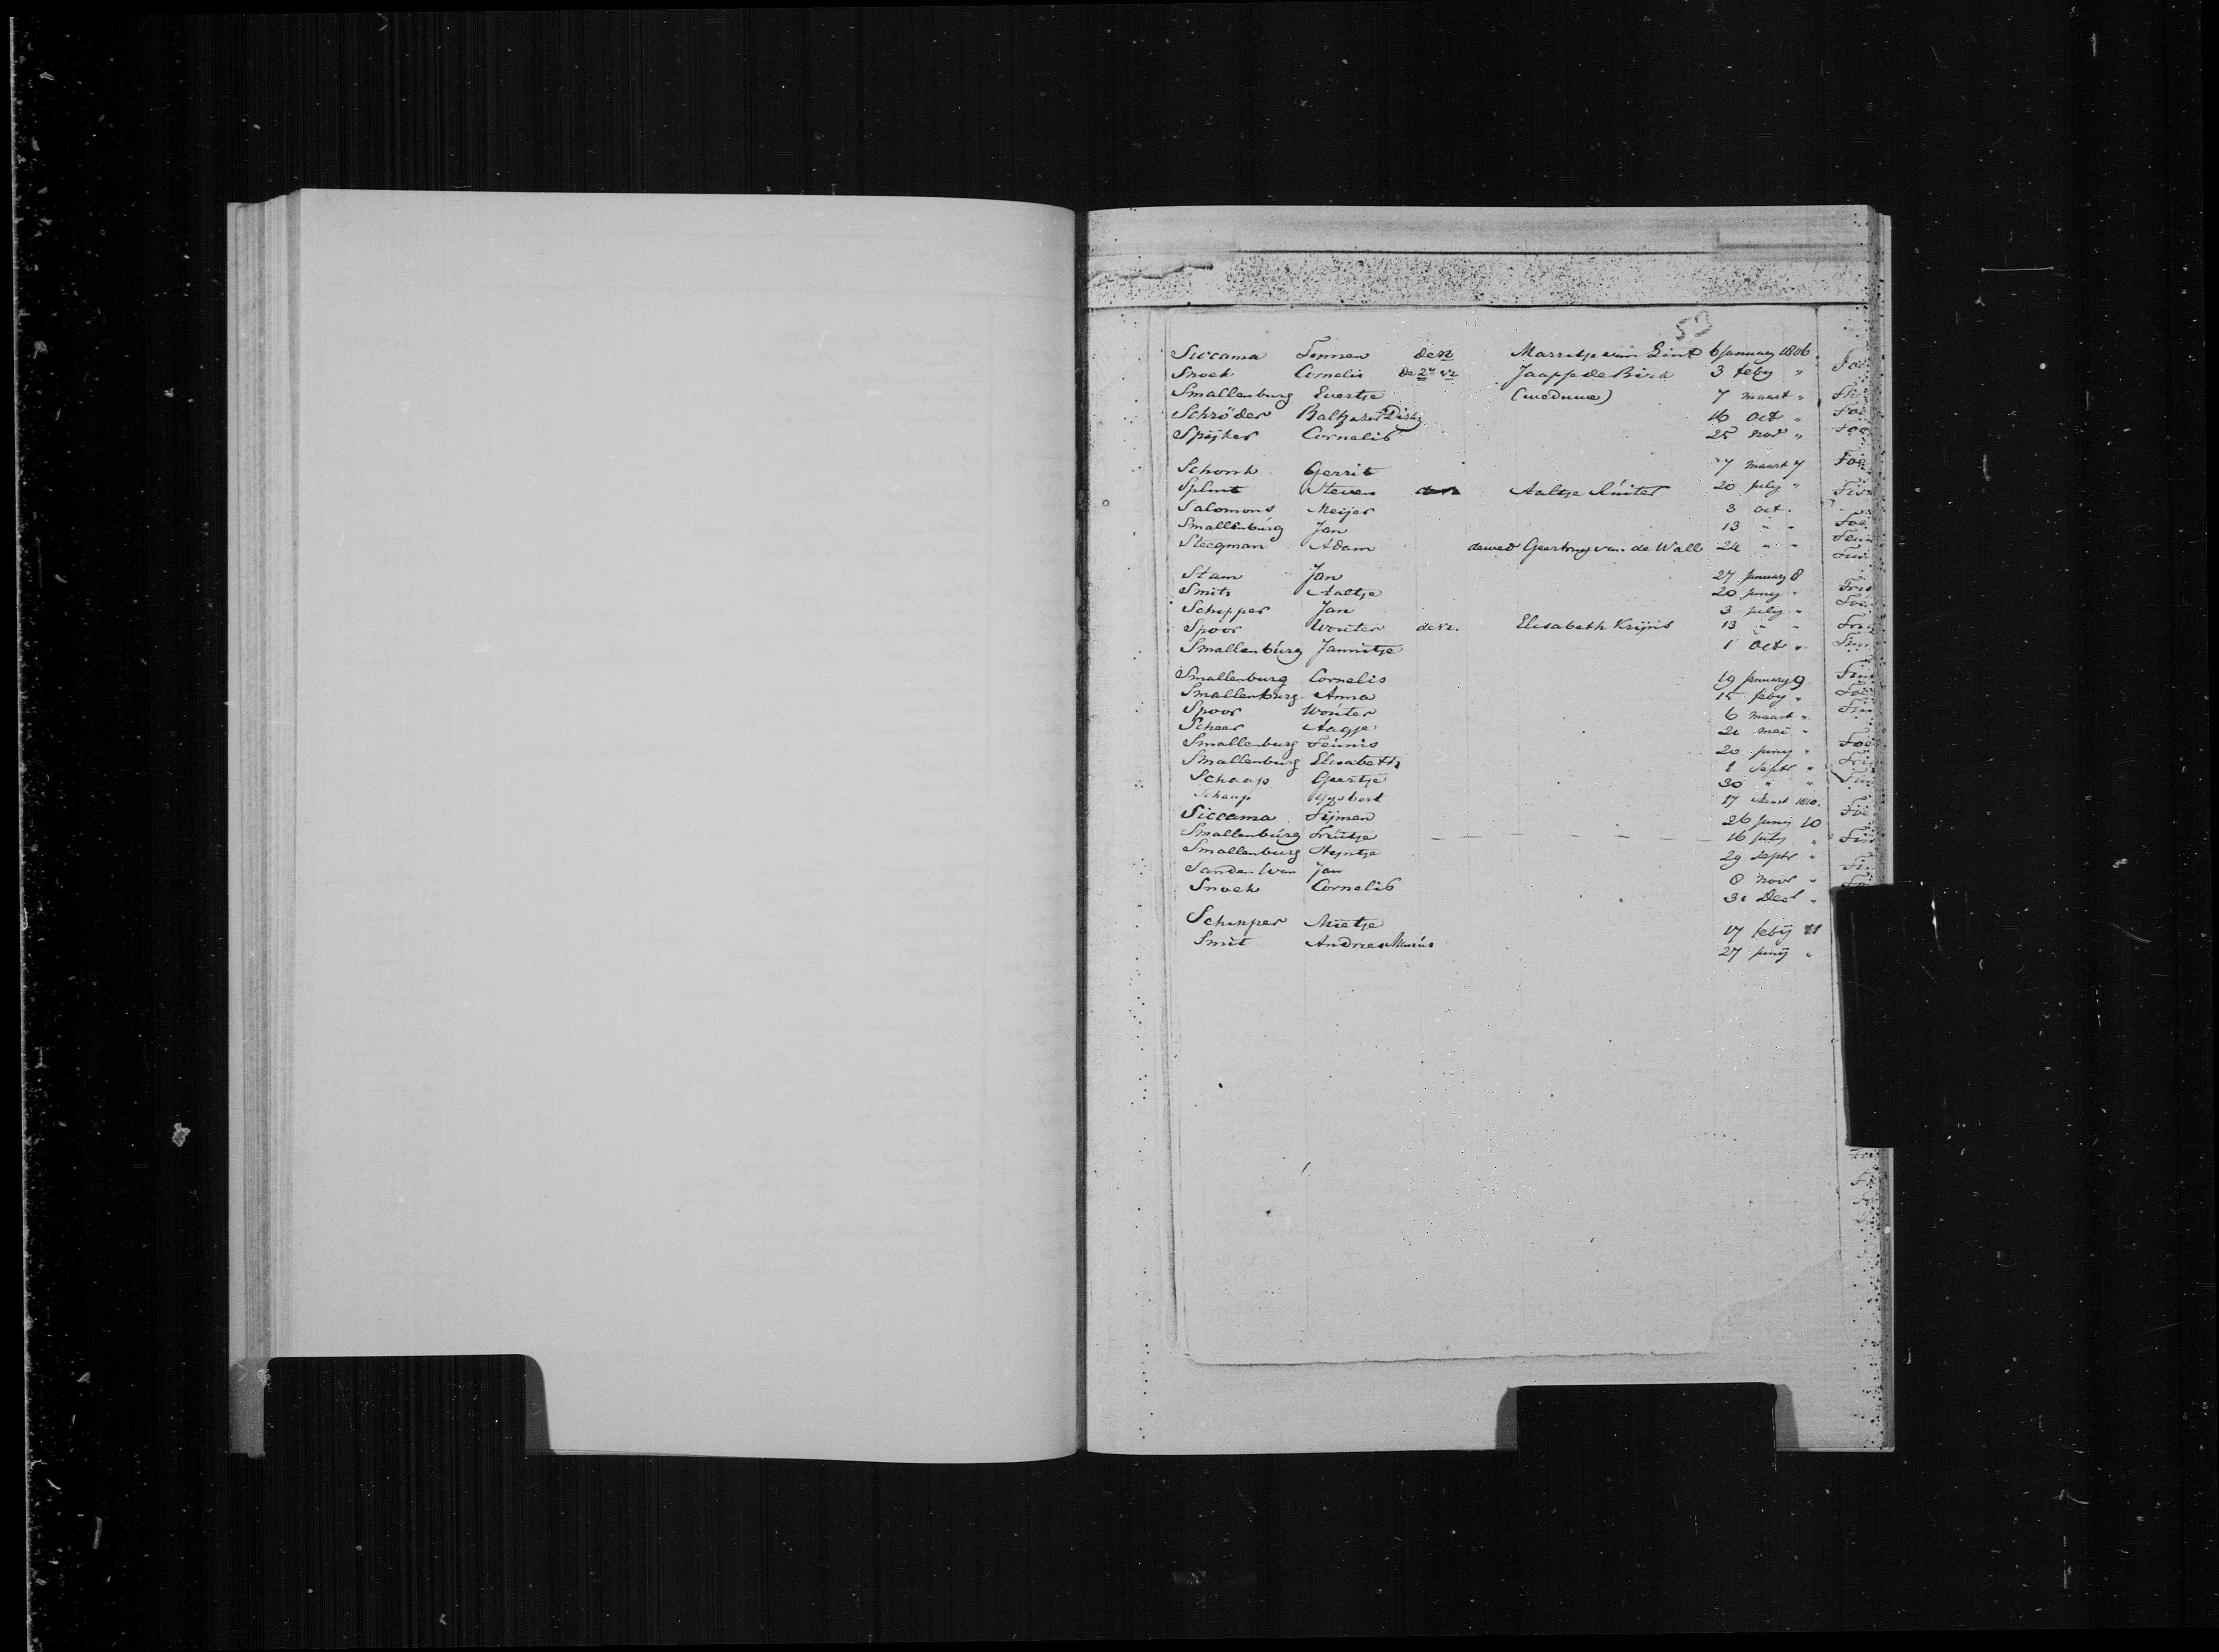 53
Siccama Timen de vr Marretje van Lint 6 January 1806
Snoek Cornelis de 2e vr Jaapje de Birk 3 feby "
Smallenburg Evertje (weduwe) 7 maart "
Schröder Baltzar Dirk 16 Oct "
Spijker Cornelis 25 nov "
Schonk Gerrit 7 maart 7
Splint Steven de vr Aaltje Ruiter 20 july "
Salomons Meijer 3 oct.
Smallenburg Jan 13 " "
Steegman Adam de wed Geertruy van de Wall 24 " "
Stam Jan 27 January 8
Smits Aaltje 20 juny "
Schipper Jan 3 july "
Spoor Wouter de vr. Elisabeth Krijns 13 " "
Smallenburg Jannitje 1 Oct "
Smallenburg Cornelis 19 January 9
Smallenburg Anna 15 feby "
Spoor Wouter 6 maart "
Scheer Aagje 21 mei "
Smallenburg Teunis 20 juny "
Smallenburg Elisabeth 1 Septr "
Schaap Geertje 30 " "
Schaap Gysbert 17 Maart 1810.
Siccama Tijmen 26 juny 10
Smallenburg Truitje 16 july "
Smallenburg Styntje 29 Septr "
Sanden van Jan 8 Novr "
Snoek Cornelis 31 Decr "
Schipper Mietje 17 feby 11
Smit Andries Marius 27 juny "